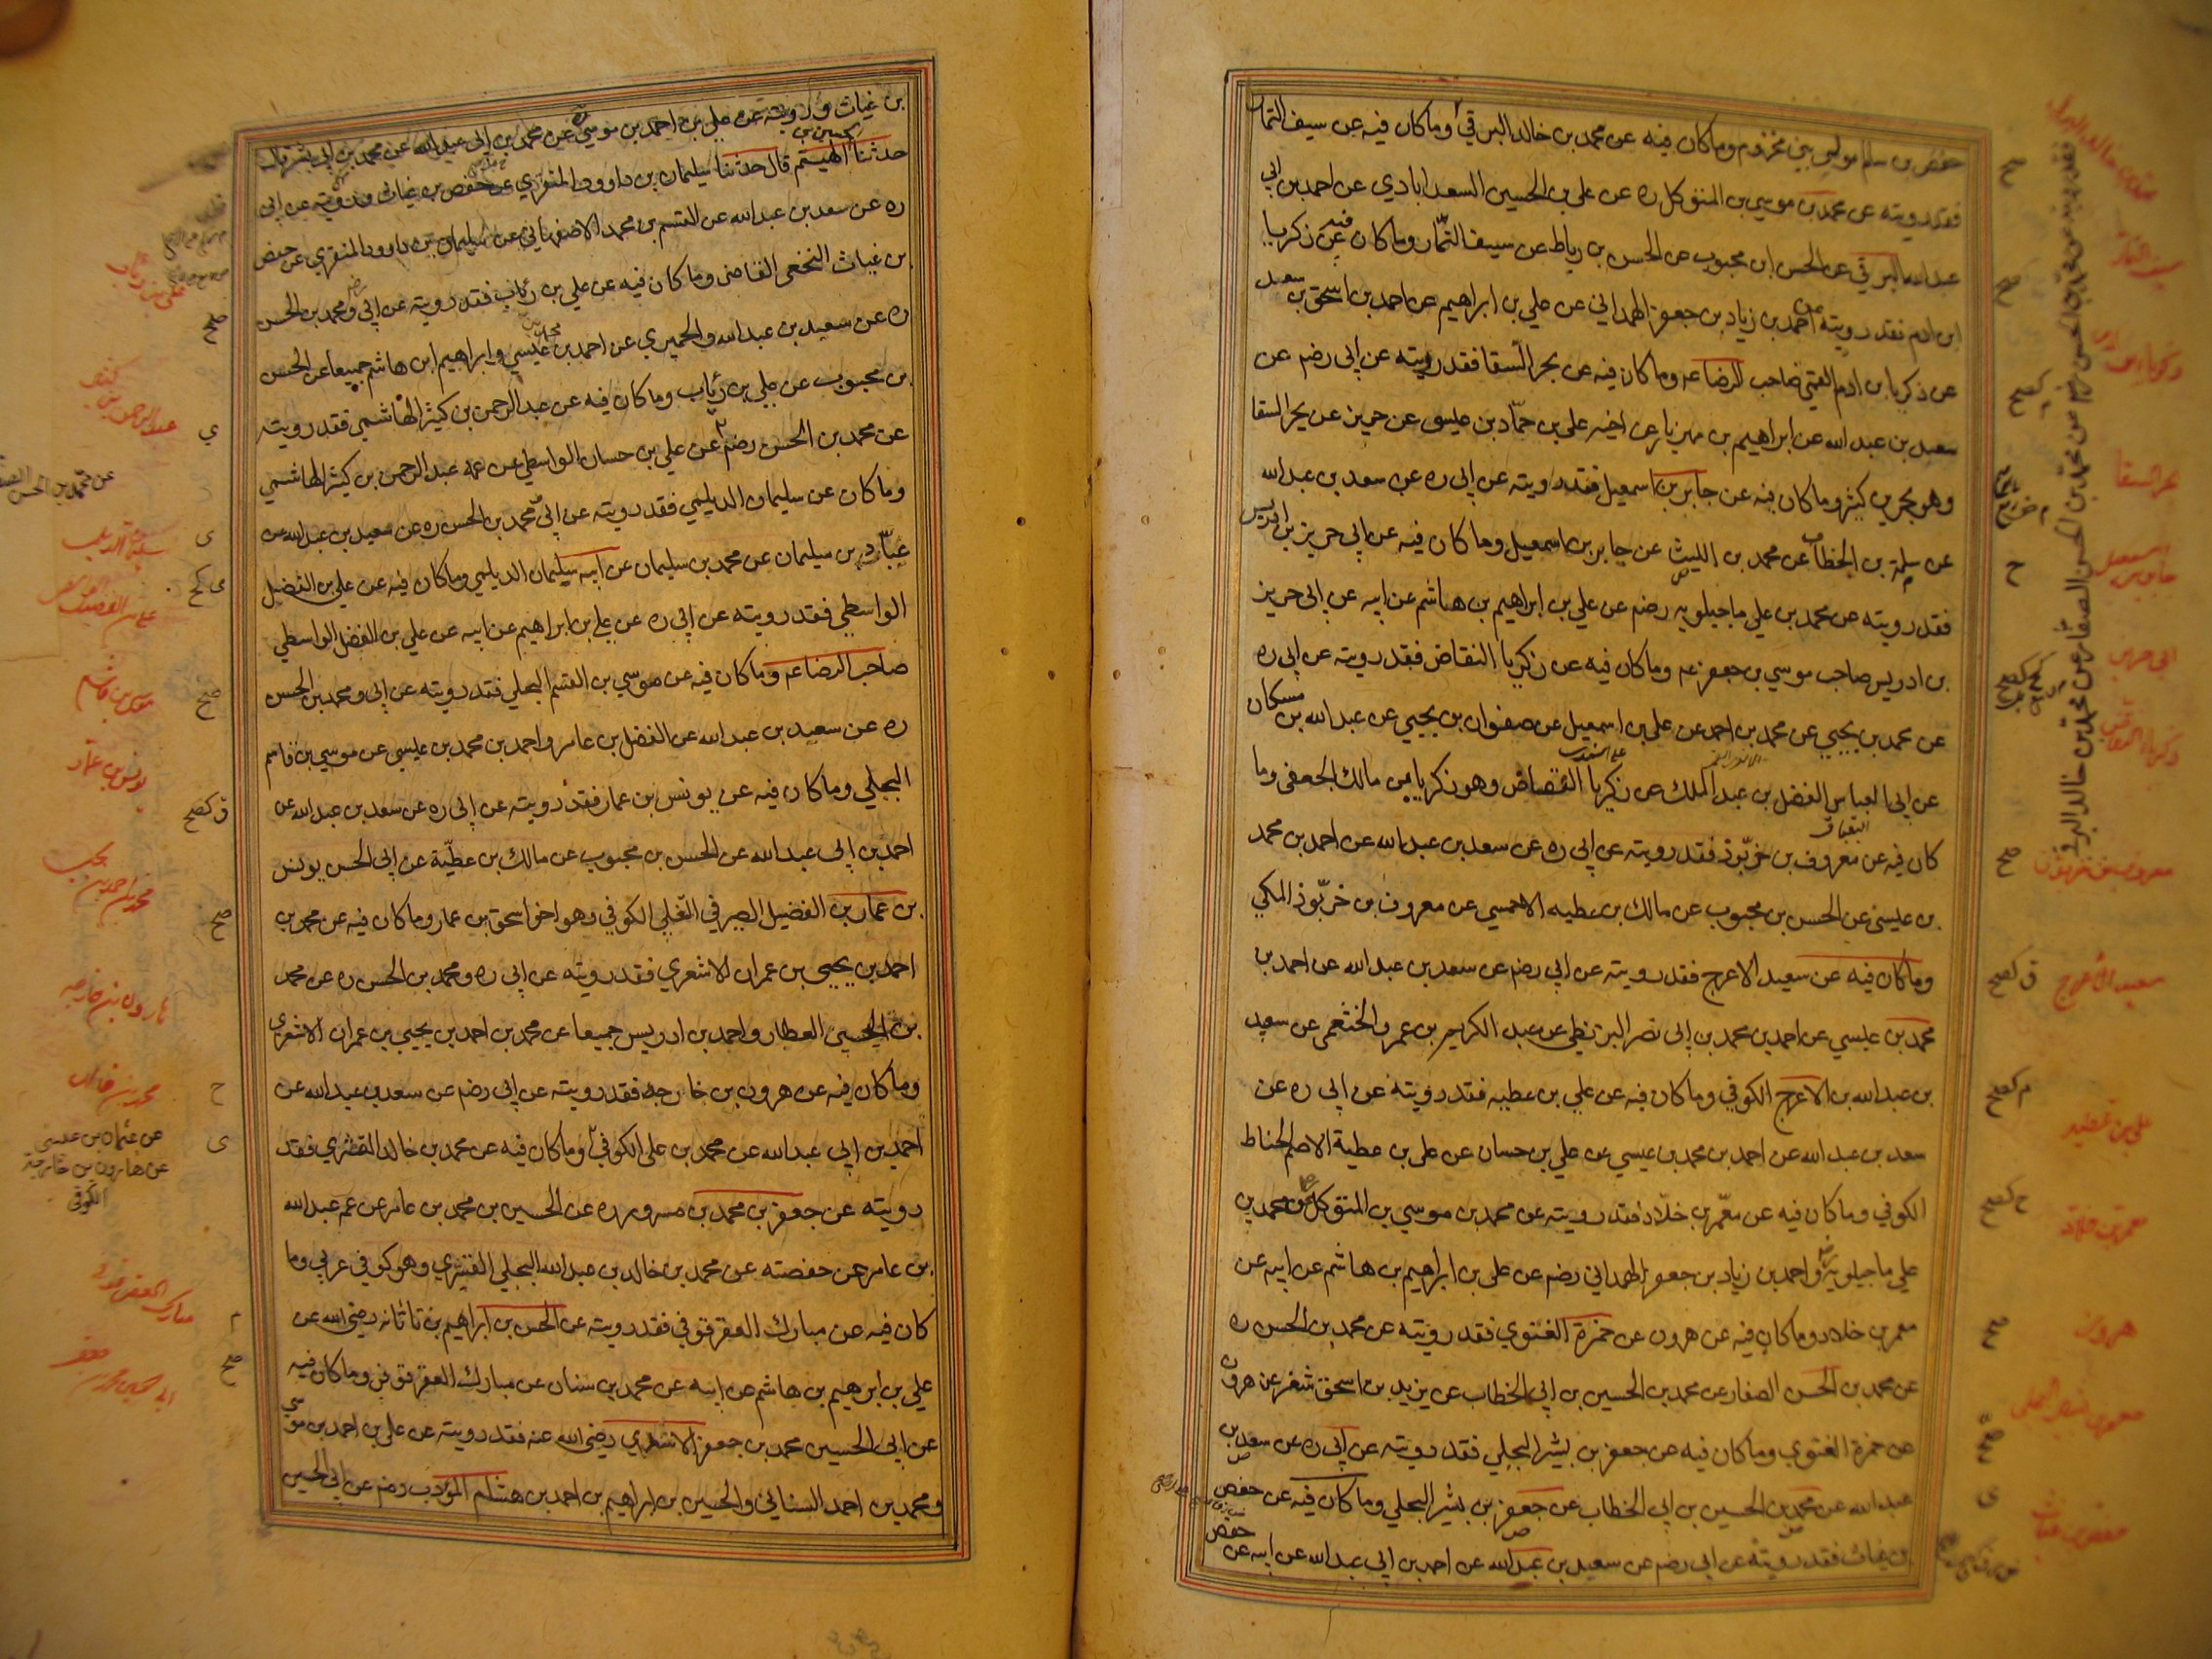 حفص بن سلم مولى بني مخزوم وما كان فيه عن محمد بن خالد البرقي وما كان فيه عن سيف التمار
فقد رويته عن محمد بن موسى بن المتوكل ره عن علي بن الحسين السعدابادي عن احمد بن ابي
عبد الله البرقي عن الحسن ابن محبوب عن الحسن بن رباط عن سيف التمّار وما كان فيه عن زكريا
ابن ادم فقد رويته عن احمد بن زياد بن جعفر الهمداني عن علي بن ابراهيم عن احمد بن اسحق بن سعد
عن زكريا بن ادم القمي صاحب الرضا عم وما كان فيه عن بحر السقا فقد رويته عن ابي رضم عن
سعد بن عبد الله عن ابراهيم بن مهزيار عن اخيه علي بن حمّاد بن عيسى عن حريز عن بحر السقا
وهو بحر بن كثير وما كان فيه عن جابر بن اسمعيل فقد رويته عن ابي ره عن سعد بن عبد الله
عن سلمة بن الخطاب عن محمد بن الليث عن جابر بن اسمعيل وما كان فيه عن ابي حريز بن ادريس
فقد رويته عن محمد بن علي ماجيلويه رضم عن علي بن ابراهيم بن هاشم عن ابيه عن ابي حريز
بن ادريس صاحب موسى بن جعفر عم وما كان فيه عن زكريا النقاض فقد رويته عن ابي ره
عن محمد بن يحيي عن محمد بن احمد عن علي بن اسمعيل عن صفوان بن يحيي عن عبد الله بن مسكان
عن ابي العباس الفضل بن عبد الملك عن زكريا النقاض وهو زكريا بن مالك الجعفي وما
كان فيه عن معروف بن خرّبوذ فقد رويته عن ابي ره عن سعد بن عبد الله عن احمد بن محمد
بن عيسى عن الحسن بن محبوب عن مالك بن عطيه الاحمسي عن معروف بن خرّبوذ المكي
وما كان فيه عن سعيد الاعرج فقد رويته عن ابي رضم عن سعد بن عبد الله عن احمد بن
محمد بن عيسي عن احمد بن محمد بن ابي نصر البزنطي عن عبد الكريم بن عمرو الخثعمي عن سعيد
بن عبد الله بن الاعرج الكوفي وما كان فيه عن علي بن عطيه فقد رويته عن ابي ره عن
سعد بن عبد الله عن احمد بن محمد بن عيسي عن علي بن حسان عن علي بن عطية الاصم الحناط
الكوفي وما كان فيه عن معمّر بن خلّاد فقد رويته عن محمد بن موسي بن المتوكل ومحمد بن
علي ماجيلويه واحمد بن زياد بن جعفر الهمداني رضم عن علي بن ابراهيم بن هاشم عن ابيه عن
معمر بن خلاد وما كان فيه عن هرون عن حمزة الغنوي فقد رويته عن محمد بن الحسن ره
عن محمد بن الحسن الصفار عن محمد بن الحسين بن ابي الخطاب عن يزيد بن اسحق شغر عن هرون
عن حمزة الغنوي وما كان فيه عن جعفر بن بشير البجلي فقد رويته عن ابي ره عن سعد بن
عبد الله عن محمد بن الحسين بن ابي الخطاب عن جعفر بن بشير البجلي وما كان فيه عن حفص
بن غياث فقد رويته عن ابي رضم عن سعيد بن عبد الله عن احمد بن ابي عبد الله عن ابيه عن حفص
سيف التمار
بحر السقا
ابي حريز
سعيد الاعرج
علي بن عطيه
معمر بن خلاد
هرون
بن غياث ورويته عن علي بن احمد بن موسي عن محمد بن ابي عبد الله عن محمد بن ابي بشر قال
حدثنا الهيثم قال حدثنا سليمان بن داوود المنقري عن حفص بن غياث ورويته عن ابي
ره عن سعد بن عبد الله عن القسم بن محمد الاصفهاني عن سليمان بن داوود المنقري عن حفص
بن غياث النخعي القاضي وما كان فيه عن علي بن رئاب فقد رويته عن ابي ومحمد بن الحسن
ره عن سعيد بن عبد الله والحميري عن احمد بن عيسي وابراهيم ابن هاشم جميعا عن الحسن
بن محبوب عن علي بن رئاب وما كان فيه عن عبد الرحمن بن كثير الهاشمي فقد رويته
عن محمد بن الحسن رضم عن علي بن حسان الواسطي عن عمه عبد الرحمن بن كثير الهاشمي
وما كان عن سليمان الديلمي فقد رويته عن ابي محمد بن الحسن ره عن سعيد بن عبد الله عن
عبّاد بن سليمان عن محمد بن سليمان عن ابيه سليمان الديلمي وما كان فيه عن علي بن الفضيل
الواسطي فقد رويته عن ابي ره عن علي بن ابراهيم عن ابيه عن علي بن الفضل الواسطي
صاحب الرضا عم وما كان فيه عن موسي بن القسم البجلي فقد رويته عن ابي ومحمد بن الحسن
ره عن سعيد بن عبد الله عن الفضل بن عامر واحمد بن محمد بن عليسي عن موسي بن قاسم
البجلي وما كان فيه عن يونس بن عمار فقد رويته عن ابي ره عن سعد بن عبد الله عن
احمد بن ابي عبد الله عن الحسن بن محبوب عن مالك بن عطيّة عن ابي الحسن يونس
بن عمار بن الفضيل الصيرفي التغلبي الكوفي وهو اخو اسحق بن عمار وما كان فيه عن محمد بن
احمد بن يحيي بن عمران الاشعري فقد رويته عن ابي ره ومحمد بن الحسن ره عن محمد
بن الحسين العطار واحمد بن ادريس جميعا عن محمد بن احمد بن يحيي بن عمران الاشعري
وما كان فيه عن هرون بن خارجه فقد رويته عن ابي رضم عن سعد بن عبد الله عن
احمد بن ابي عبد الله عن محمد بن علي الكوفي وما كان فيه عن محمد بن خالد القشري فقد
رويته عن جعفر بن محمد بن مسرور ره عن الحسين بن محمد بن عامر عن عمه عبد الله
بن عامر عن حفصته عن محمد بن خالد بن عبد الله البجلي القشري وهو كوفي عربي وما
كان فيه عن مبارك العقرقوفي فقد رويته عن الحسن بن ابراهيم بن تاتانه رضي الله عن
علي بن ابرهيم بن هاشم عن ابيه عن محمد بن سنان عن مبارك العقرقوفي وما كان فيه
عن ابي الحسين محمد بن جعفر الاشعري رضي الله عنه فقد رويته عن علي بن احمد بن موسي
ومحمد بن احمد السناني والحسين بن ابراهيم بن احمد بن هشام المؤدب رضم عن ابي الحسين
علي بن رئاب
عبد الرحمن بن كثير
يونس بن عمار
هارون بن خارجه
عن عثمان بن عيسى
عن هارون بن خارجة
الكوفي